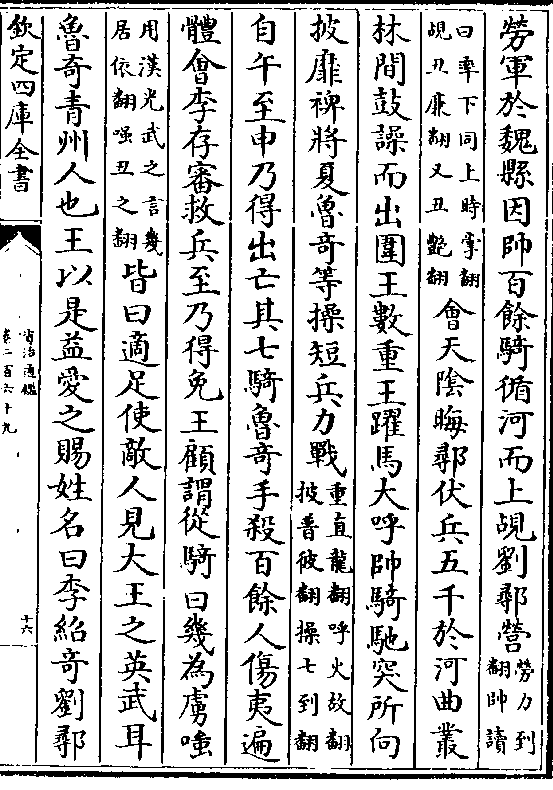 勞軍於魏縣因帥百餘騎循河而上覘劉鄩營勞力到翻帥讀
曰率下同上時掌翻覘丑亷翻又丑艶翻會天隂晦鄩伏兵五千於河曲叢
林間鼓譟而出圍王數重王躍馬大呼帥騎馳突所向
披靡裨將夏魯奇等操短兵力戰重直龍翻呼火故翻披普彼翻操七到翻
自午至申乃得出亡其七騎魯竒手殺百餘人傷夷遍
體會李存審救兵至乃得免王顧謂從騎曰幾為虜嗤
用漢光武之言幾居依翻嗤丑之翻皆曰適足使敵人見大王之英武耳
魯奇青州人也王以是益愛之賜姓名曰李紹奇劉鄩
欽定四庫全書
資治通鑑
卷二百六十九
十六